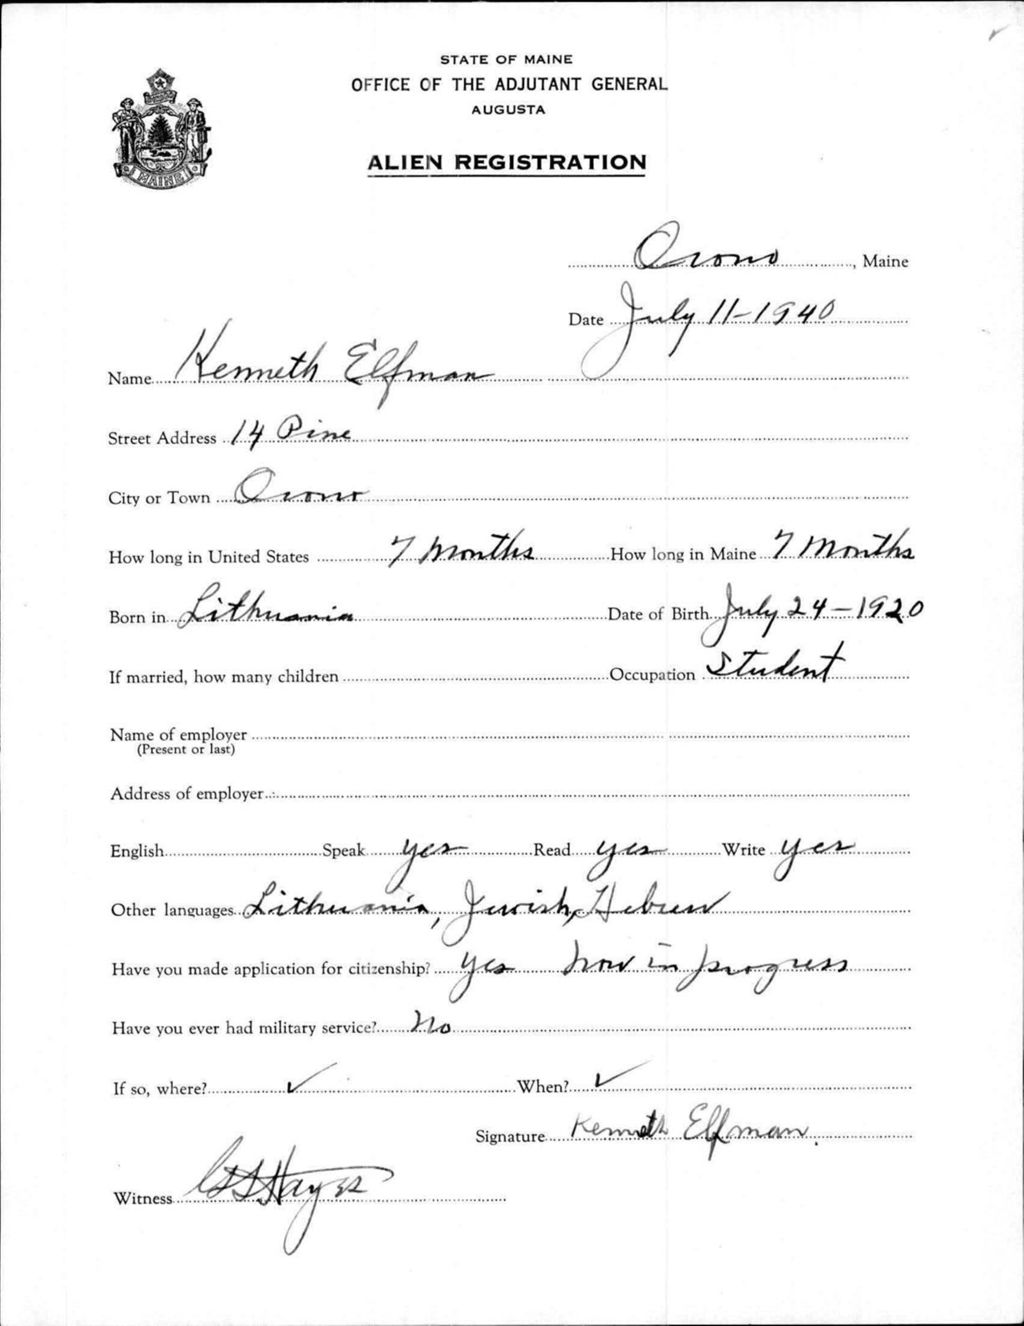 STATE OF MAINE
OFFICE OF THE ADJUTANT GENERAL
AUGUSTA
ALIEN REGISTRATION
MAINE
Orono, Maine
Date July 11-1940
Name Kenneth Elfman
Street Address 14 Pine
City or Town Orono
How long in United States 7 Months How long in Maine 7 Months
Born in Lithuania Date of Birth July 24-1920
If married, how many children Occupation Student
Name of employer
(Present or last)
Address of employer
English Speak yes Read yes Write yes
Other languages Lithuania, Jewish, Hebrew
Have you made application for citizenship? yes now in progress
Have you ever had military service? No
If so, where? ✓ When? ✓
Signature Kenneth Elfman.
Witness Hayes